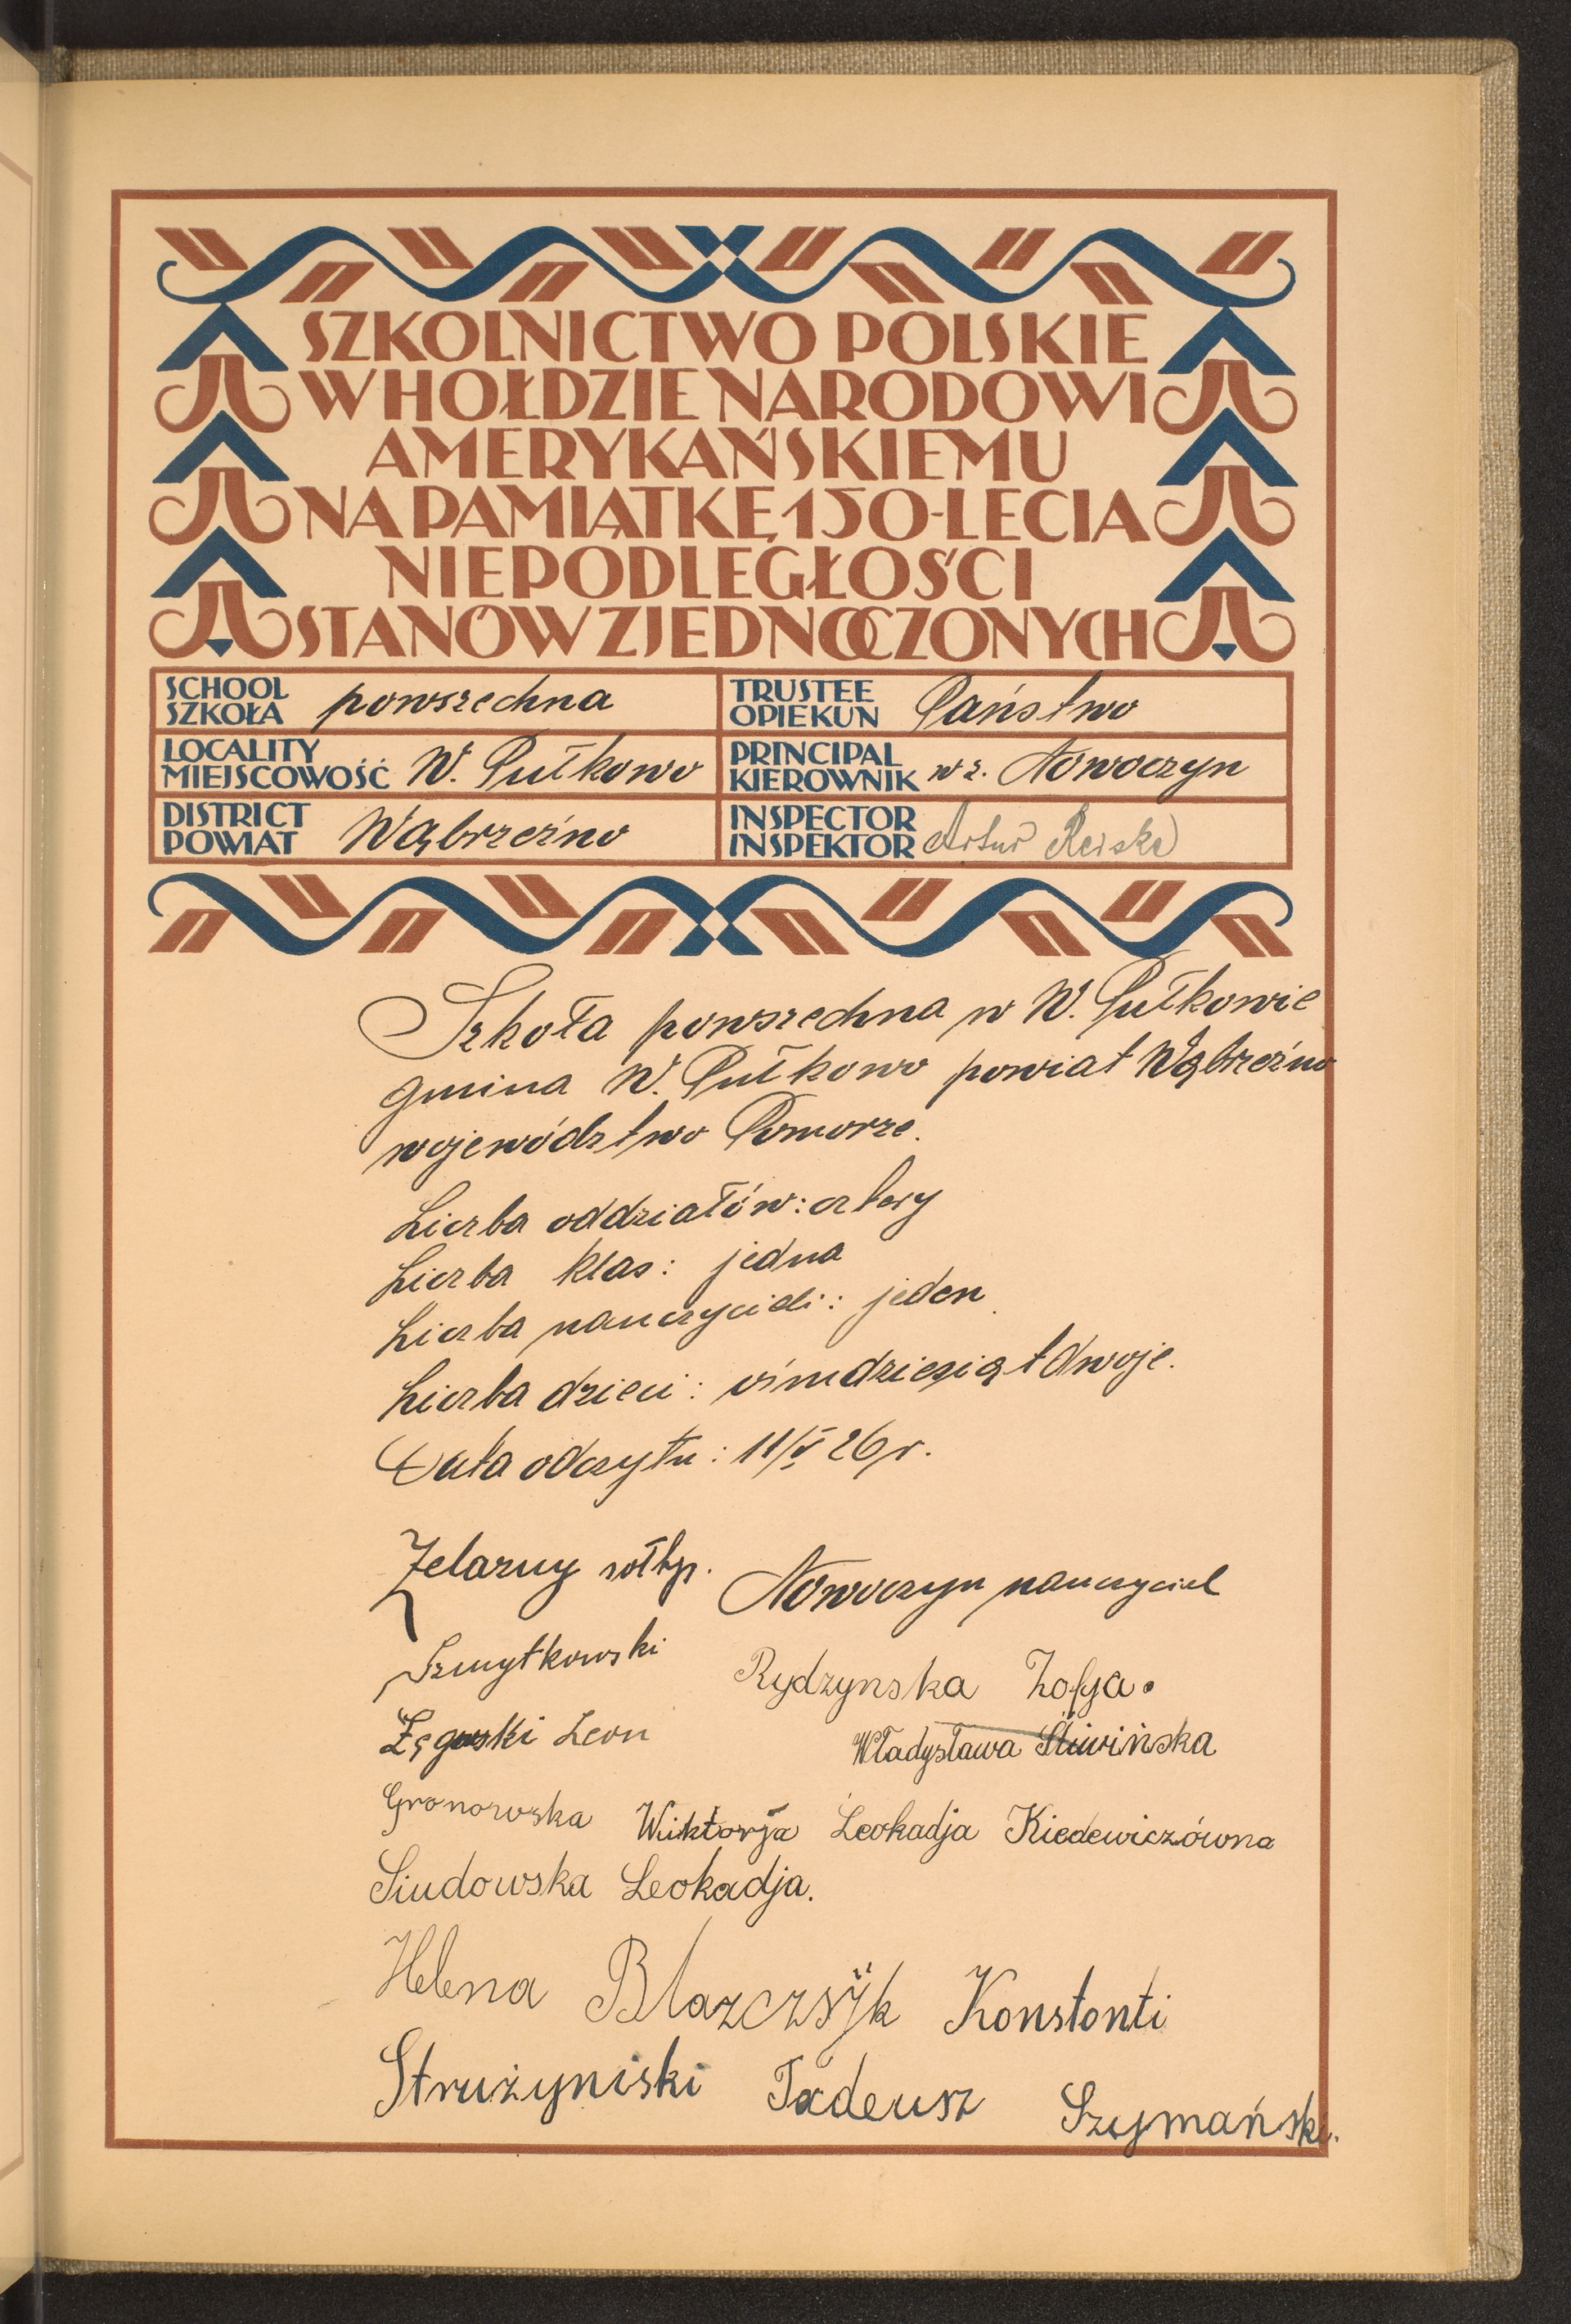 SZKOLNICTWO POLSKIE
W HOŁDZIE NARODOWI
AMERYKAŃSKIEMU
NA PAMIĄTKĘ 150-LECIA
NIEPODLEGŁOŚCI
STANÓW ZJEDNOCZONYCH
SCHOOL
SZKOŁA powszechna
TRUSTEE
OPIEKUN Państwo
LOCALITY
MIEJSCOWOŚĆ W. Pułkowo
PRINCIPAL
KIEROWNIK wz. Nowoczyn
DISTRICT
POWIAT Wąbrzeźno
INSPECTOR
INSPEKTOR Artur Reiske
Szkoła powszechna w W. Pułkowie
gmina W. Pułkowo powiat Wąbrzeźno
województwo Pomorze.
Liczba oddziałów: cztery
Liczba klas: jedna
Liczba nauczycieli: jeden
Liczba dzieci: ośmdziesiąt dwoje.
Data odczytu: 11/V 26 r.
Żelazny sołtys. Nowoczyn nauczyciel
Szmytkowski Rydzynska Zofja.
Leon Władysława Śliwińska
Gronowska Wiktorja Leokadja Kiedewiczówna
Siudowska Leokadja.
Helena Blazczsÿk Konstonti
Strużyniski Tadeusz Szymański.